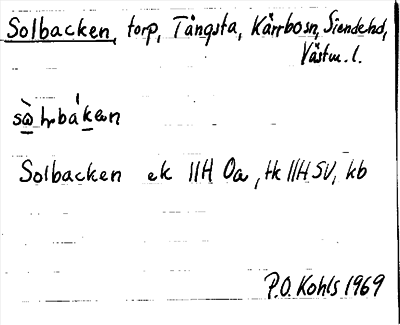 Solbacken, torp, Tångsta, Kärrbosn, Siendehd,
Västm. l.
Solbacken ek 11H 0a, tk 11H SV, kb
P.O. Kohls 1969